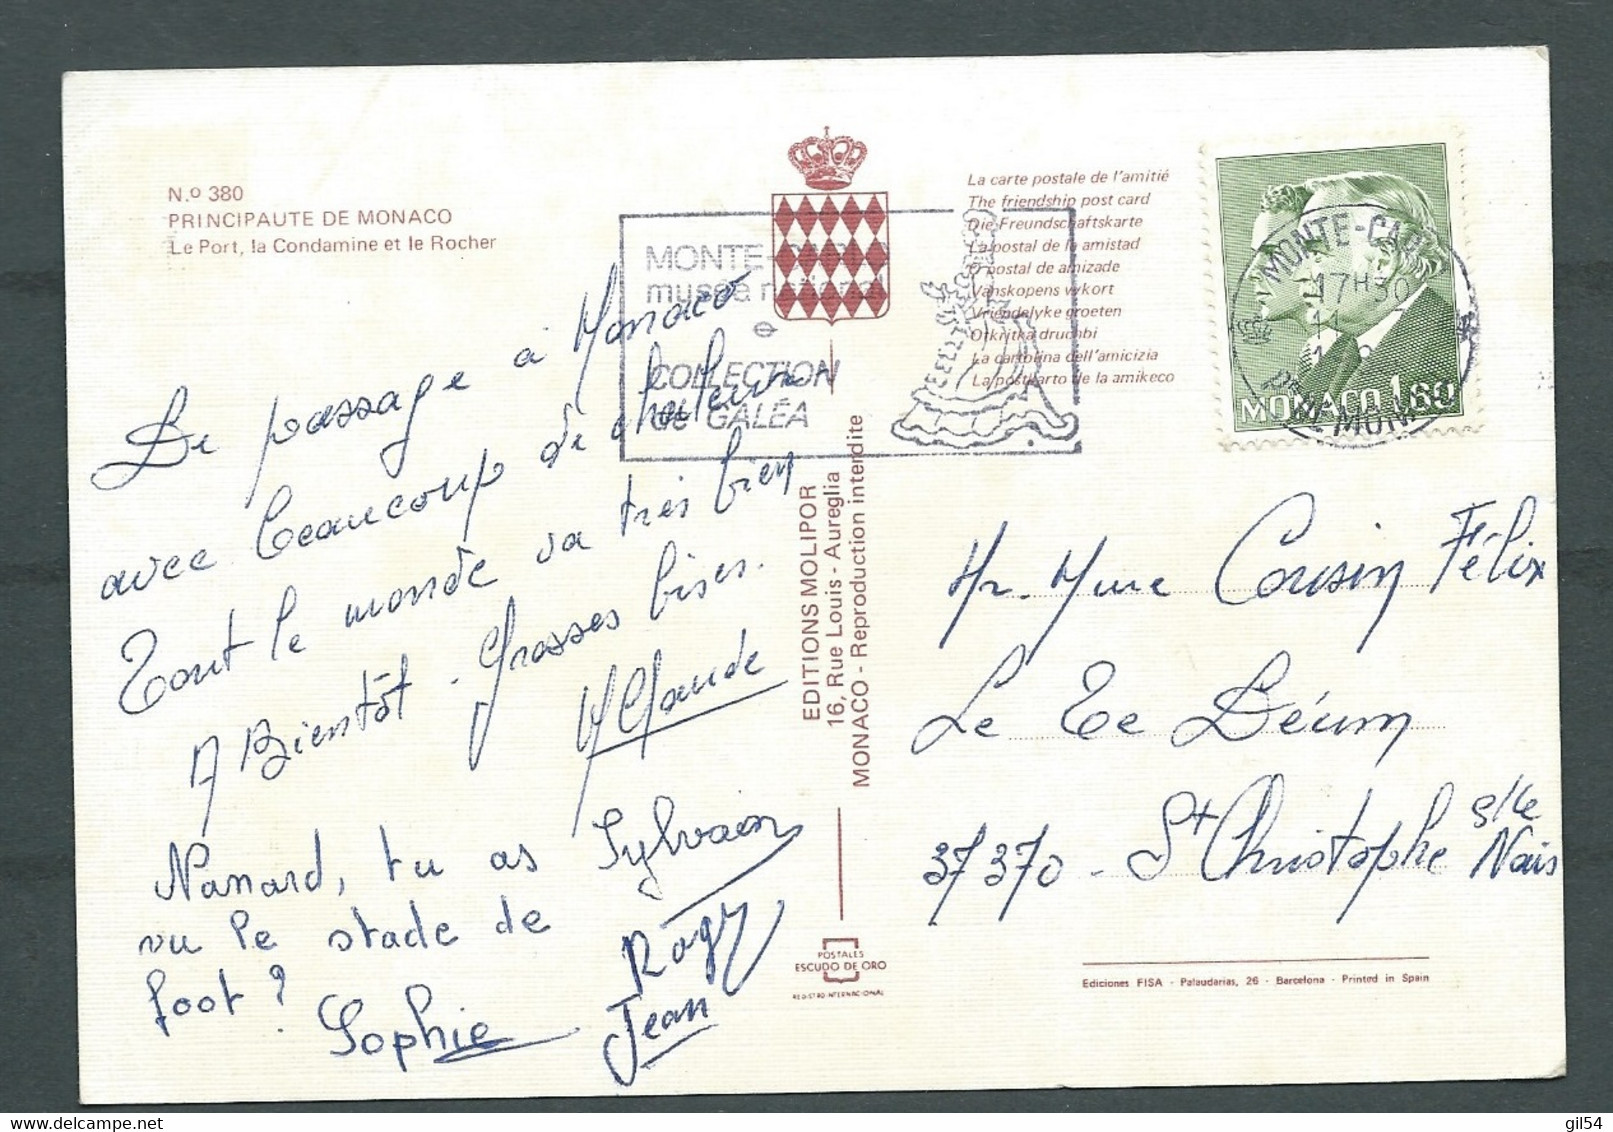 N.º 380
PRINCIPAUTE DE MONACO
Le Port, la Condamine et le Rocher
De passage à Monaco
avec beaucoup de chaleur
Tout le monde va très bien
A Bientôt. Grosses bises.
M Claude
Nanard, tu as
vu le stade de
foot?
Sylvain
Rogy
Jean
Sophie
MONTE-CARLO
musée national
COLLECTION
de GALÉA
EDITIONS MOLIPOR
16, Rue Louis - Aureglia
MONACO - Reproduction interdite
POSTALES
ESCUDO DE ORO
REGISTRO INTERNACIONAL
La carte postale de l'amitié
The friendship post card
Die Freundschaftskarte
La postal de la amistad
O postal de amizade
Vanskopens vykort
Vriendelyke groeten
Otkritka druchbi
La cartolina dell'amicizia
La postkarto de la amikeco
MONTE-CARLO
17H30
11
PTE DE MONACO
MONACO 1.60
Mr. Mme Cousin Félix
Le Te Déum
37370 - St Christophe s/le
Nais
Ediciones FISA - Palaudarias, 26 - Barcelona - Printed in Spain
gil54